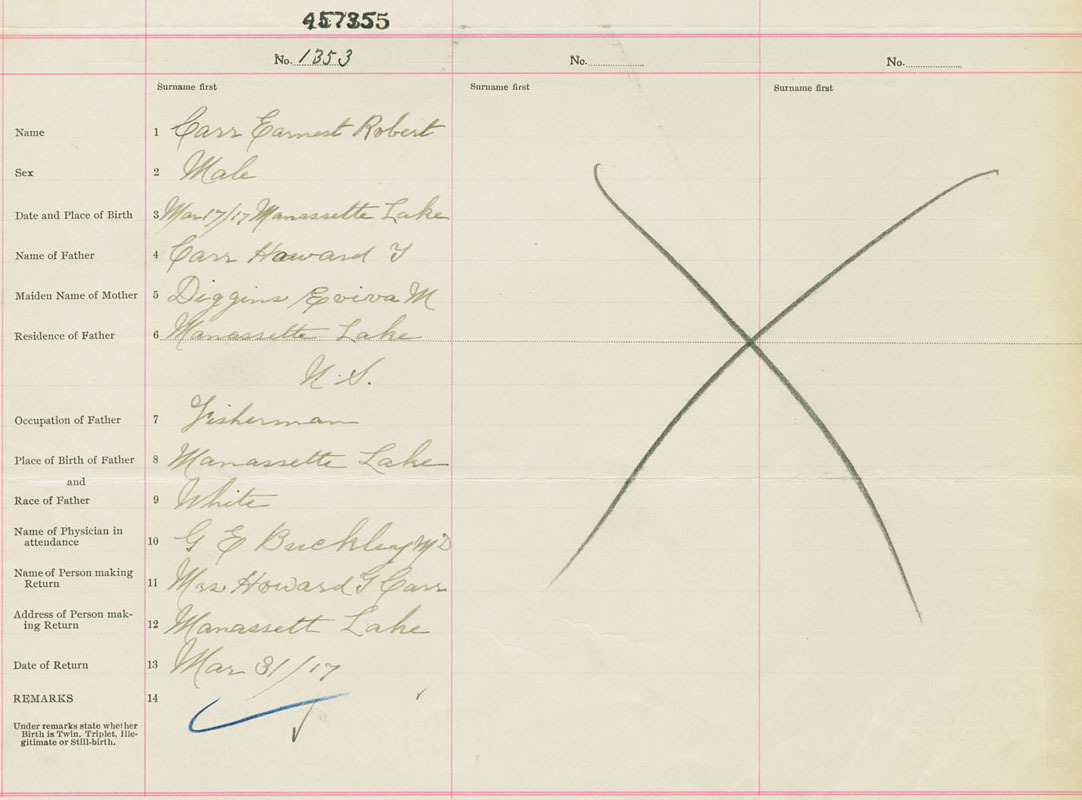 457355
No. 1353
No.
No.
Surname first
Surname first
Surname first
Name 1 Carr Earnest Robert
Sex 2 Male
Date and Place of Birth 3 Mar 17/17 Manassette Lake
Name of Father 4 Carr Howard
Maiden Name of Mother 5 Diggins Eviva M
Residence of Father 6 Manassette Lake
N.S.
Occupation of Father 7 Fisherman
Place of Birth of Father 8 Manassette Lake
and
Race of Father 9 White
Name of Physician in
attendance 10 G E Buckley M D
Name of Person making
Return 11 Mrs Howard Carr
Address of Person mak-
ing Return 12 Manassett Lake
Date of Return 13 Mar 31/17
REMARKS 14
Under remarks state whether
Birth is Twin, Triplet, Ille-
gitimate or Still-birth.